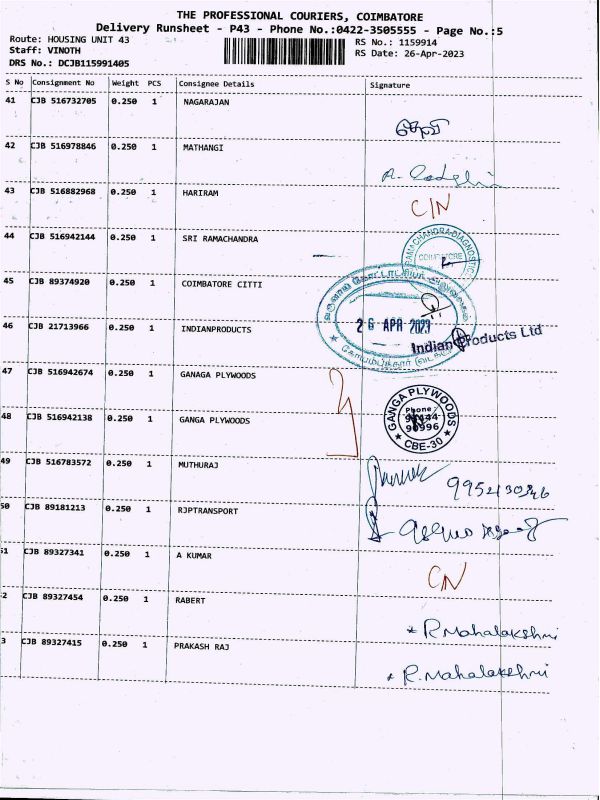 THE PROFESSIONAL COURIERS, COIMBATORE
Delivery Runsheet - P43 - Phone No.:0422-3505555 - Page No.:5
Route: HOUSING UNIT 43
RS No.: 1159914
Staff: VINOTH
RS Date: 26-Apr-2023
DRS No.: DCJB115991405
S No Consignment No Weight PCS Consignee Details Signature
41 CJB 516732705 0.250 1 NAGARAJAN
42 CJB 516978846 0.250 1 MATHANGI
43 CJB 516882968 0.250 1 HARIRAM C/N
44 CJB 516942144 0.250 1 SRI RAMACHANDRA
45 CJB 89374920 0.250 1 COIMBATORE CITTI
26 APR 2023
46 CJB 21713966 0.250 1 INDIANPRODUCTS Indian Products Ltd
47 CJB 516942674 0.250 1 GANAGA PLYWOODS
GANGA PLYWOODS
Phone :
90996
CBE-30
48 CJB 516942138 0.250 1 GANGA PLYWOODS
49 CJB 516783572 0.250 1 MUTHURAJ
50 CJB 89181213 0.250 1 RJPTRANSPORT
51 CJB 89327341 0.250 1 A KUMAR C/N
2 CJB 89327454 0.250 1 RABERT * R.Mahalakshmi
3 CJB 89327415 0.250 1 PRAKASH RAJ * R.Mahalakshmi